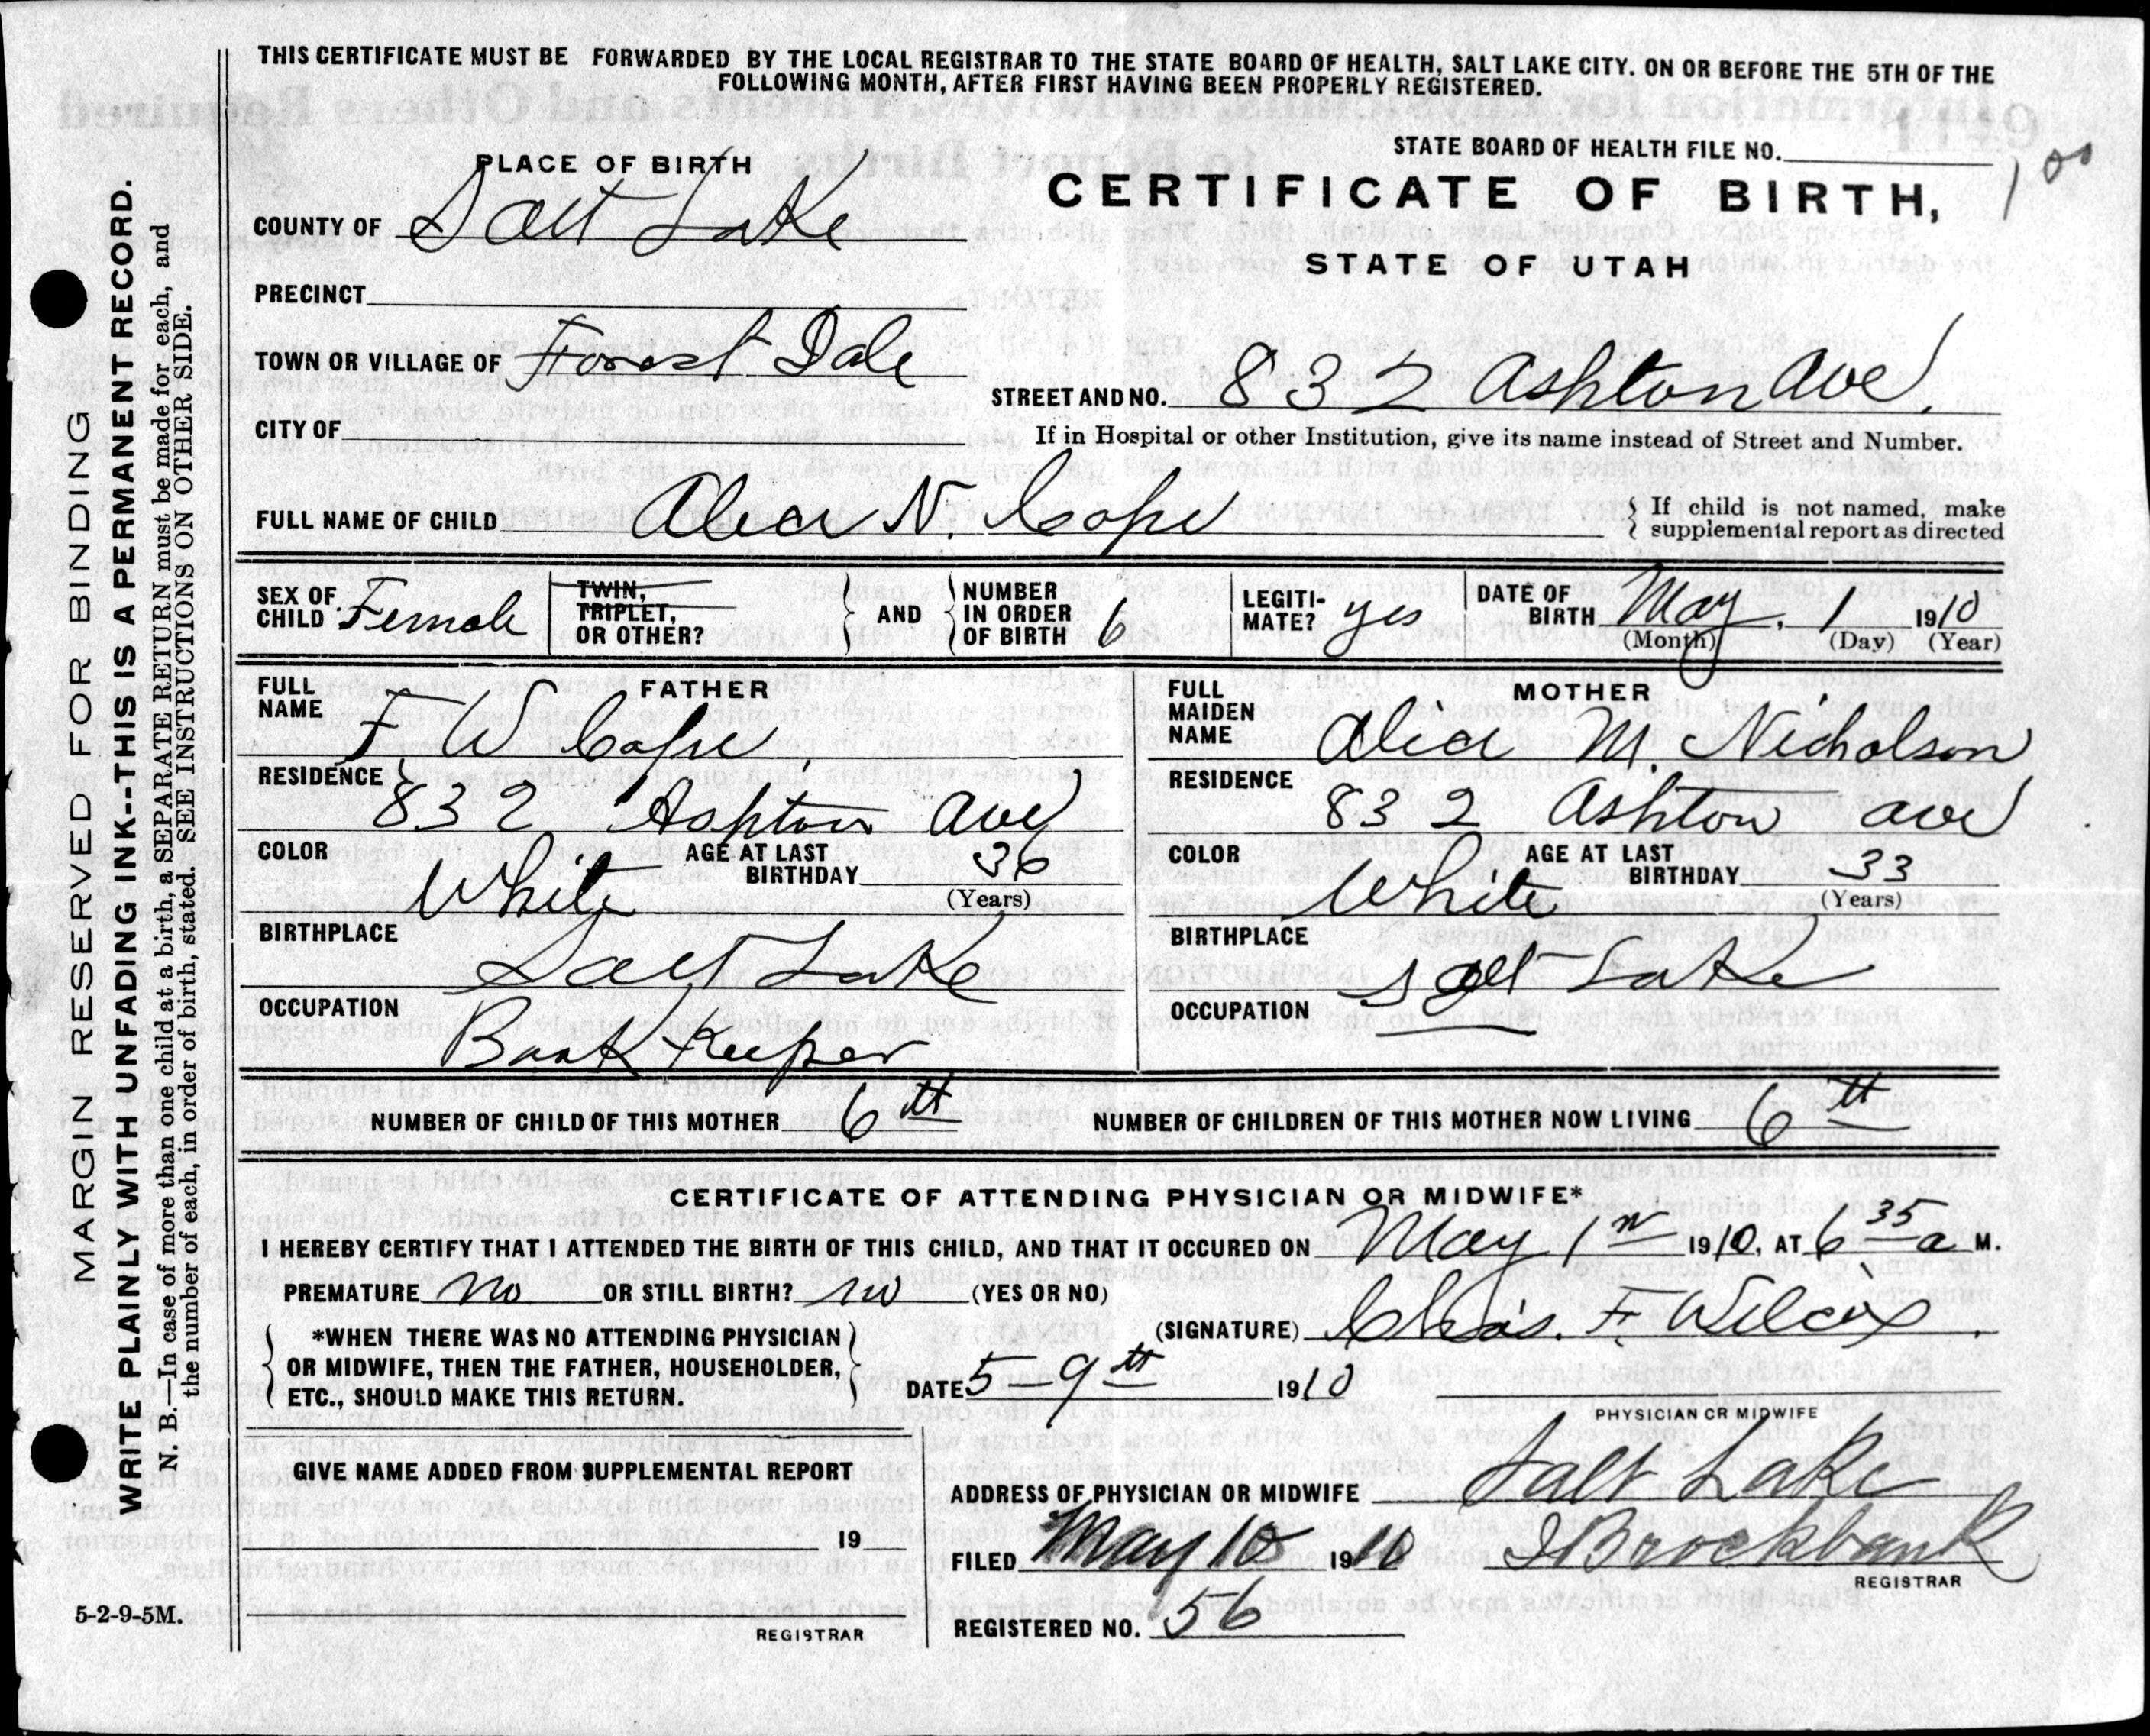 THIS CERTIFICATE MUST BE FORWARDED BY THE LOCAL REGISTRAR TO THE STATE BOARD OF HEALTH, SALT LAKE CITY. ON OR BEFORE THE 5TH OF THE
FOLLOWING MONTH, AFTER FIRST HAVING BEEN PROPERLY REGISTERED.
STATE BOARD OF HEALTH FILE NO.
100
PLACE OF BIRTH
CERTIFICATE OF BIRTH,
STATE OF UTAH
COUNTY OF Salt Lake
PRECINCT
TOWN OR VILLAGE OF Forest Dale
STREET AND NO. 832 Ashton Ave.
CITY OF
If in Hospital or other Institution, give its name instead of Street and Number.
FULL NAME OF CHILD Alice N. Cope
If child is not named, make
supplemental report as directed
SEX OF CHILD Female
TWIN, TRIPLET, OR OTHER?
AND
NUMBER IN ORDER OF BIRTH 6
LEGITI-MATE? yes
DATE OF BIRTH May. 1 1910
(Month) (Day) (Year)
FATHER
FULL NAME F W Cope
RESIDENCE 832 Ashton Ave
COLOR White
AGE AT LAST BIRTHDAY 36
(Years)
BIRTHPLACE Salt Lake
OCCUPATION Book Keeper
MOTHER
FULL MAIDEN NAME Alice M. Nicholson
RESIDENCE 832 Ashton Ave
COLOR White
AGE AT LAST BIRTHDAY 33
(Years)
BIRTHPLACE Salt Lake
OCCUPATION
NUMBER OF CHILD OF THIS MOTHER 6th
NUMBER OF CHILDREN OF THIS MOTHER NOW LIVING 6th
CERTIFICATE OF ATTENDING PHYSICIAN OR MIDWIFE*
I HEREBY CERTIFY THAT I ATTENDED THE BIRTH OF THIS CHILD, AND THAT IT OCCURED ON May 1st 1910, AT 6 35 a M.
PREMATURE No OR STILL BIRTH? No (YES OR NO)
*WHEN THERE WAS NO ATTENDING PHYSICIAN
OR MIDWIFE, THEN THE FATHER, HOUSEHOLDER,
ETC., SHOULD MAKE THIS RETURN.
(SIGNATURE) Chas. F. Wilcox.
DATE 5-9th 1910
PHYSICIAN OR MIDWIFE
GIVE NAME ADDED FROM SUPPLEMENTAL REPORT
19
REGISTRAR
ADDRESS OF PHYSICIAN OR MIDWIFE Salt Lake
FILED May 10 1910 Brockbank
REGISTRAR
REGISTERED NO. 56
MARGIN RESERVED FOR BINDING
WRITE PLAINLY WITH UNFADING INK--THIS IS A PERMANENT RECORD.
N. B.—In case of more than one child at a birth, a SEPARATE RETURN must be made for each, and
the number of each, in order of birth, stated. SEE INSTRUCTIONS ON OTHER SIDE.
5-2-9-5M.